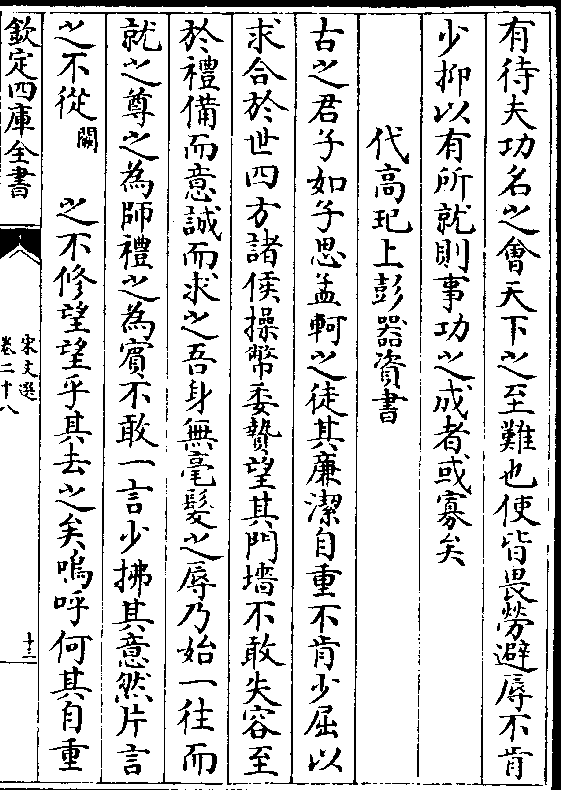 有待夫功名之會天下之至難也使皆畏勞避辱不肯
少抑以有所就則事功之成者或寡矣
代高玘上彭器資書
古之君子如子思孟軻之徒其廉潔自重不肯少屈以
求合於世四方諸侯操幣委贄望其門墻不敢失容至
於禮備而意誠而求之吾身無毫髮之辱乃始一往而
就之尊之為師禮之為賓不敢一言少拂其意然片言
之不從闕之不修望望乎其去之矣嗚呼何其自重
欽定四庫全書
宋文選
卷二十八
十三